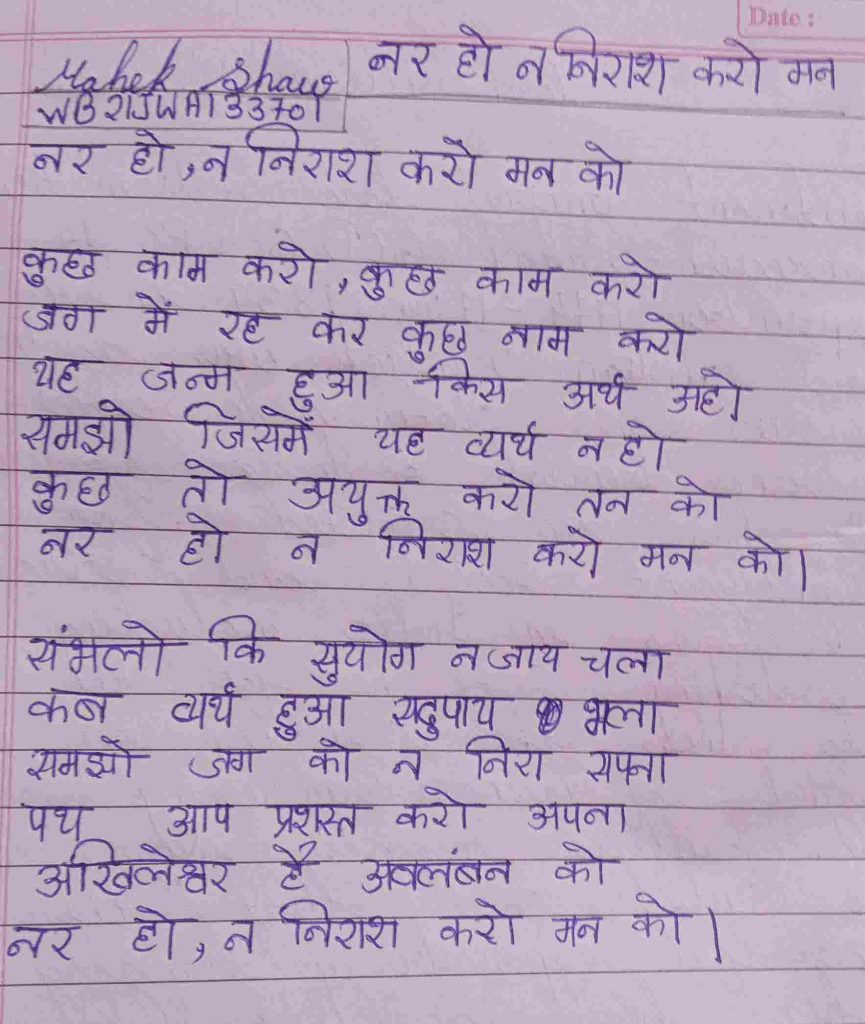 Date :
Mahek Shaw
नर हो न निराश करो मन
WB21JWA133701
नर हो , न निराश करो मन को
कुछ काम करो , कुछ काम करो
जग में रह कर कुछ नाम करो
यह जन्म हुआ किस अर्थ अहो
समझो जिसमें यह व्यर्थ न हो
कुछ तो अयुक्त करो तन को
नर हो न निराश करो मन को।
संभलो कि सुयोग न जाय चला
कब व्यर्थ हुआ सदुपाय भला
समझो जग को न निरा सपना
पथ आप प्रशस्त करो अपना
अखिलेश्वर है अवलंबन को
नर हो , न निराश करो मन को।